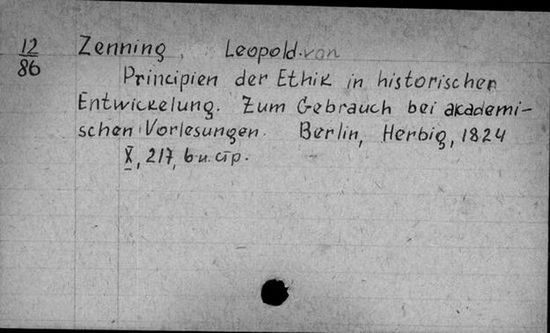 12/86
Zenning, Leopold von
Principien der Ethik in historischer
Entwickelung. Zum Gebrauch bei akademi-
schen Vorlesungen. Berlin, Herbig, 1824
X, 217, б н. стр.